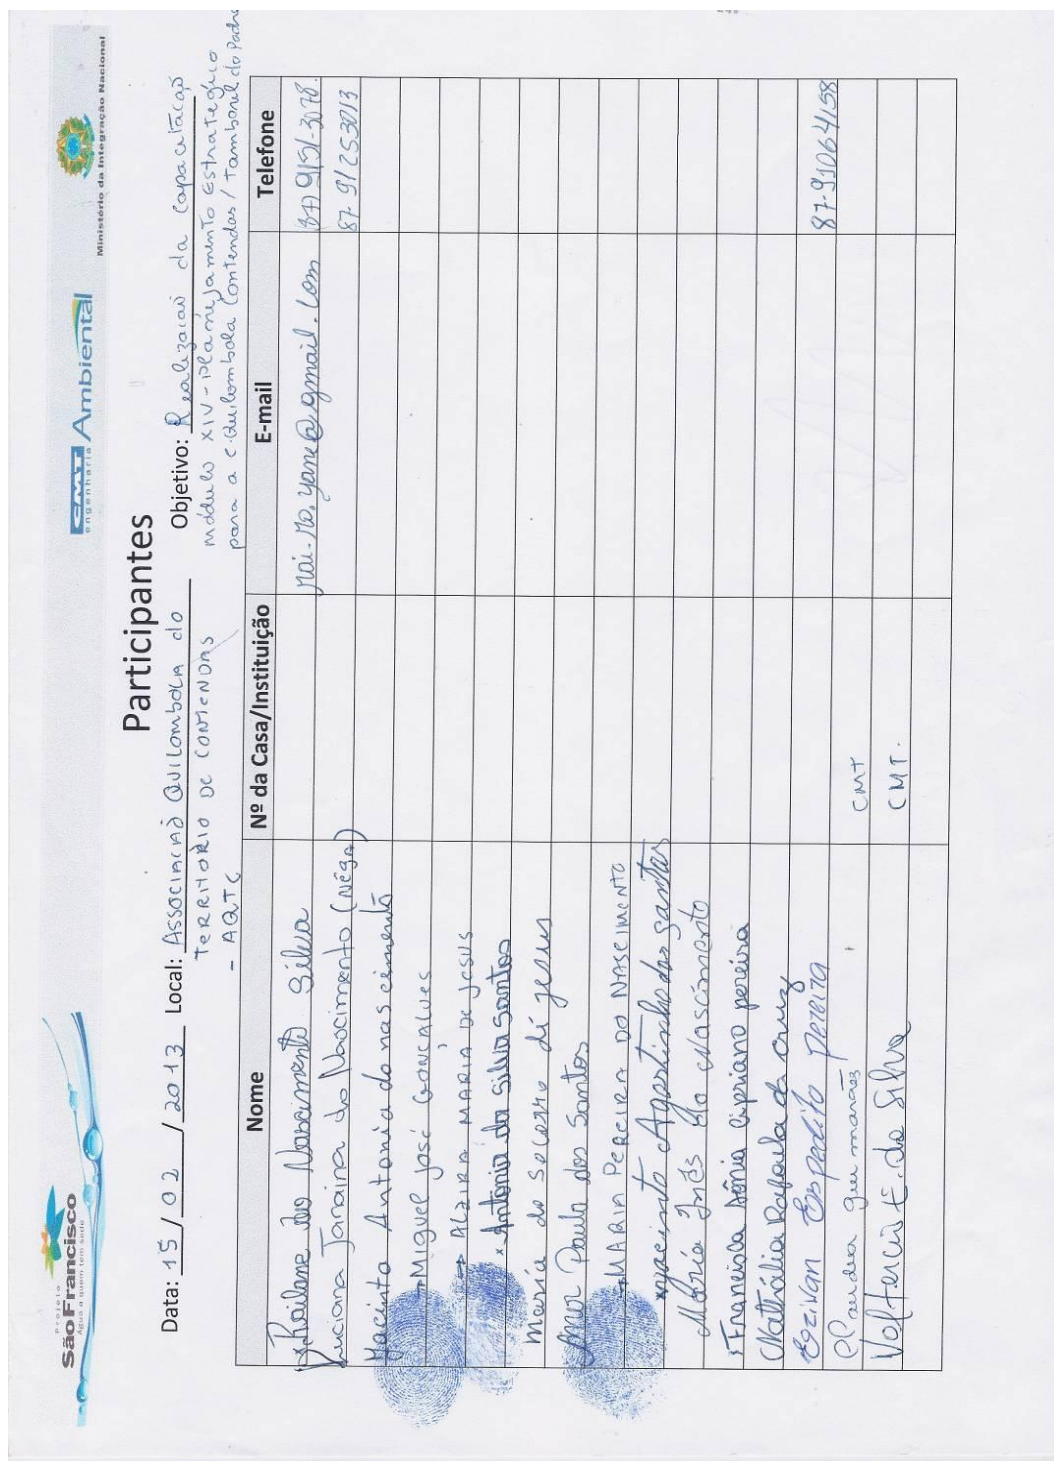 Projeto
São Francisco
Água a quem tem sede
CMT Ambiental
engenharia
Ministério da Integração Nacional
Participantes
Data: 15/02/2013 Local: Associação Quilombola do Objetivo: Realização da Capacitação
Território de Contendas módulo XIV - Planejamento Estratégico
- AQTC para a C. Quilombola Contendas / Tamboril do Padre
Nome Nº da Casa/Instituição E-mail Telefone
Railane do Nascimento Silva mai-no.yane@gmail.com
Luciana Janaina do Nascimento (Nêga) 87-91253013
Jacinta Antonia do nascimento
Miguel José Gonçalves
Alzira Maria de Jesus
Antonia da Silva Santos
Maria do Socorro di jesus
Paulo dos Santos
Maria Pereira do Nascimento
Jacinto Agostinho dos santos
Maria Inês do Nascimento
Francisca Sônia Cipriano pereira
Nathália Rafaela da Cruz
Egzivan Expedito Pereira 87-91064158
Claudea guimarães CMT
Valtercio E. da Silva CMT.